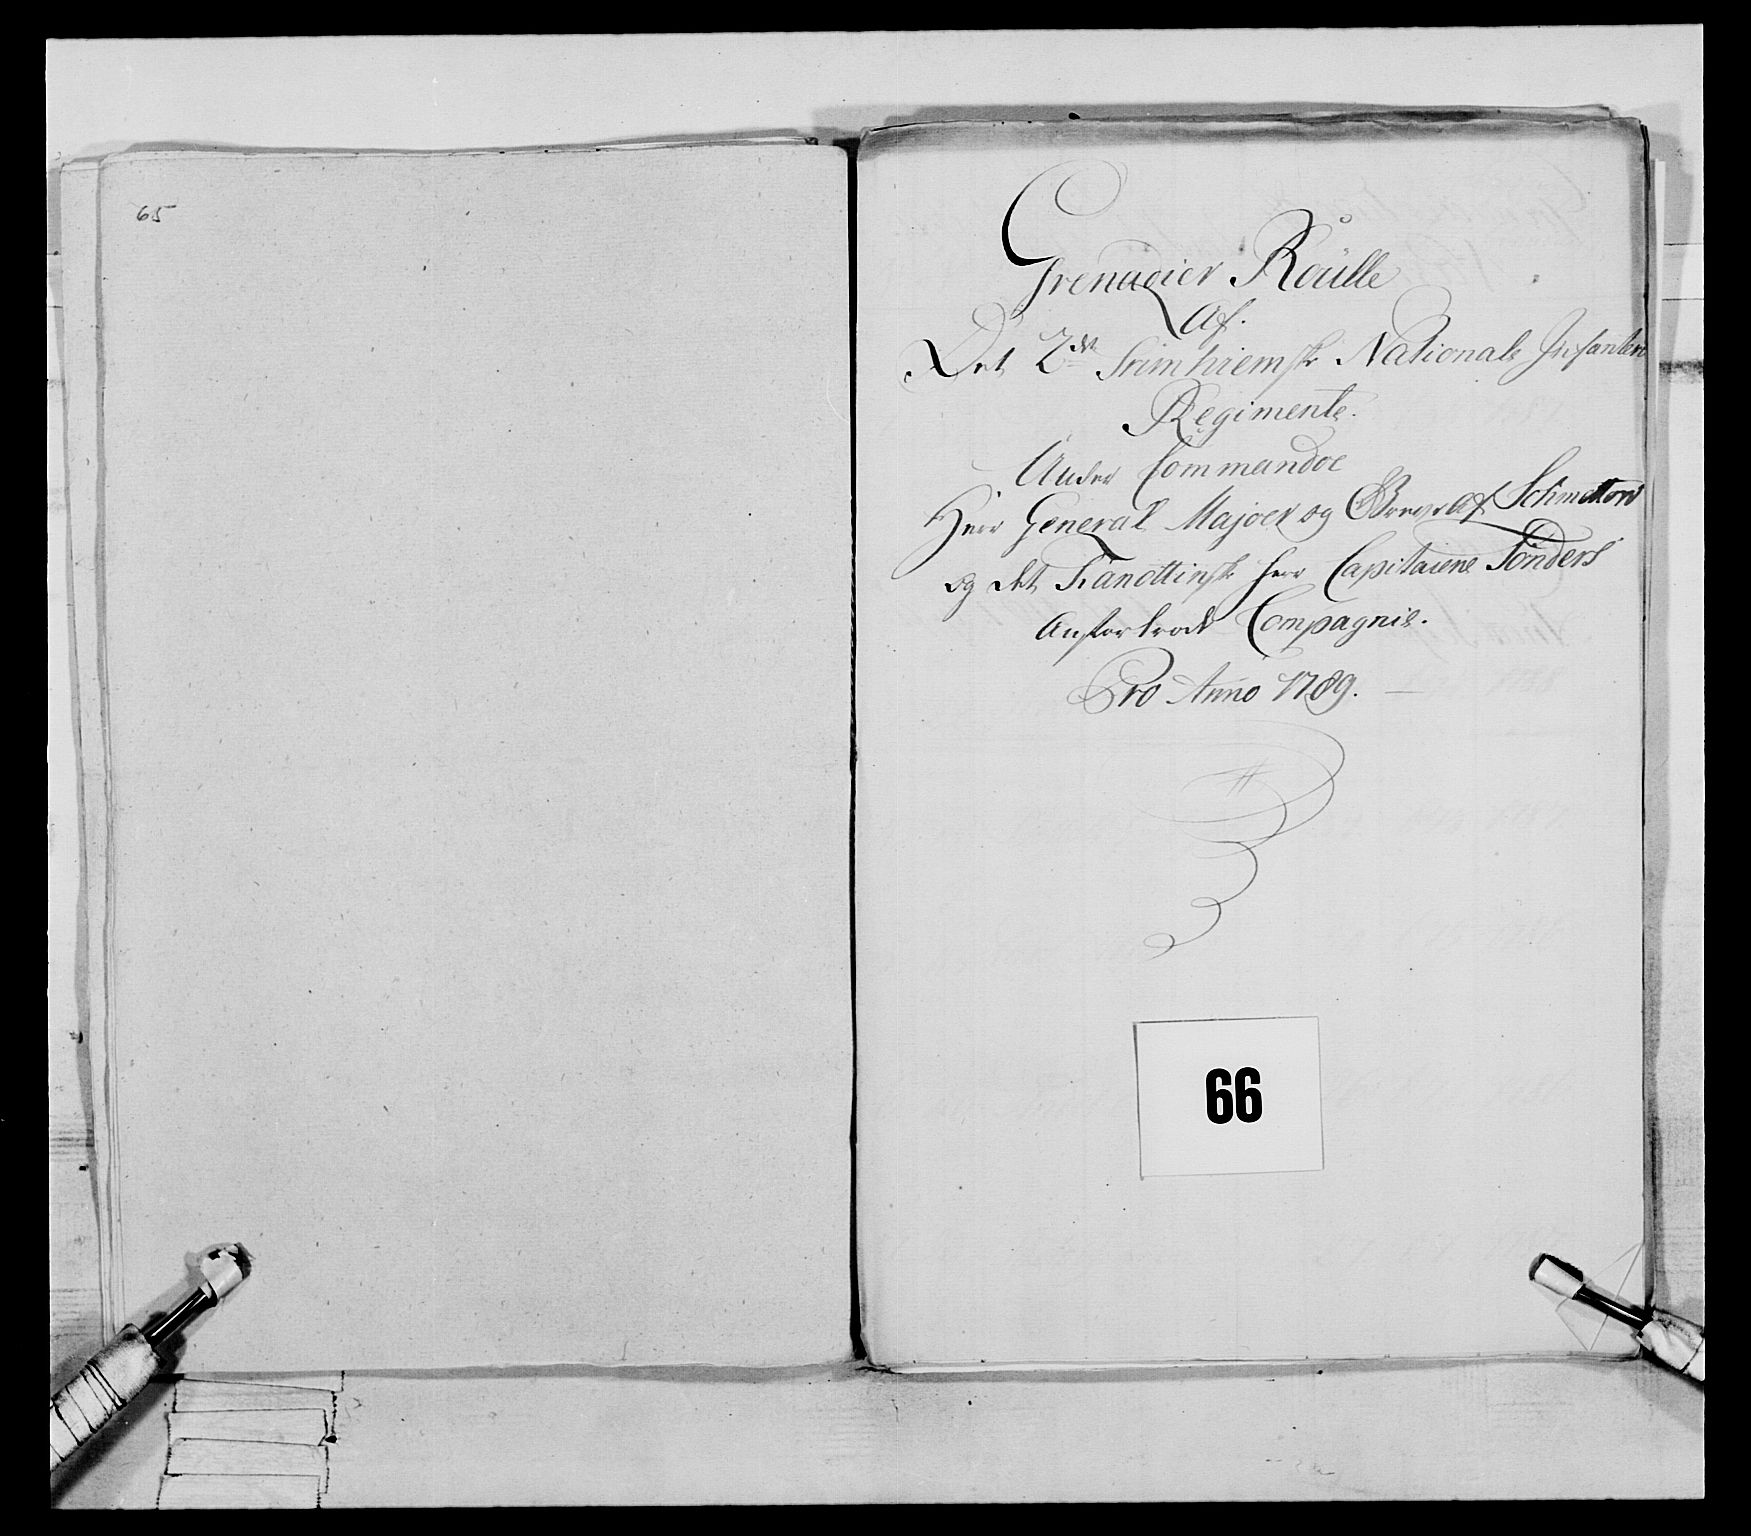 65
Grenadeer Roulle
Af.
Det 2det Trimhiemsk Nationals Infanterie
Regimente.
Under Commandoe
Herr General Majoer og Grever af Schmettow
og det Kanottinsk herr Capitaiene Tønders
Anfortrode Compagnie.
Pro Anno 1789.
66